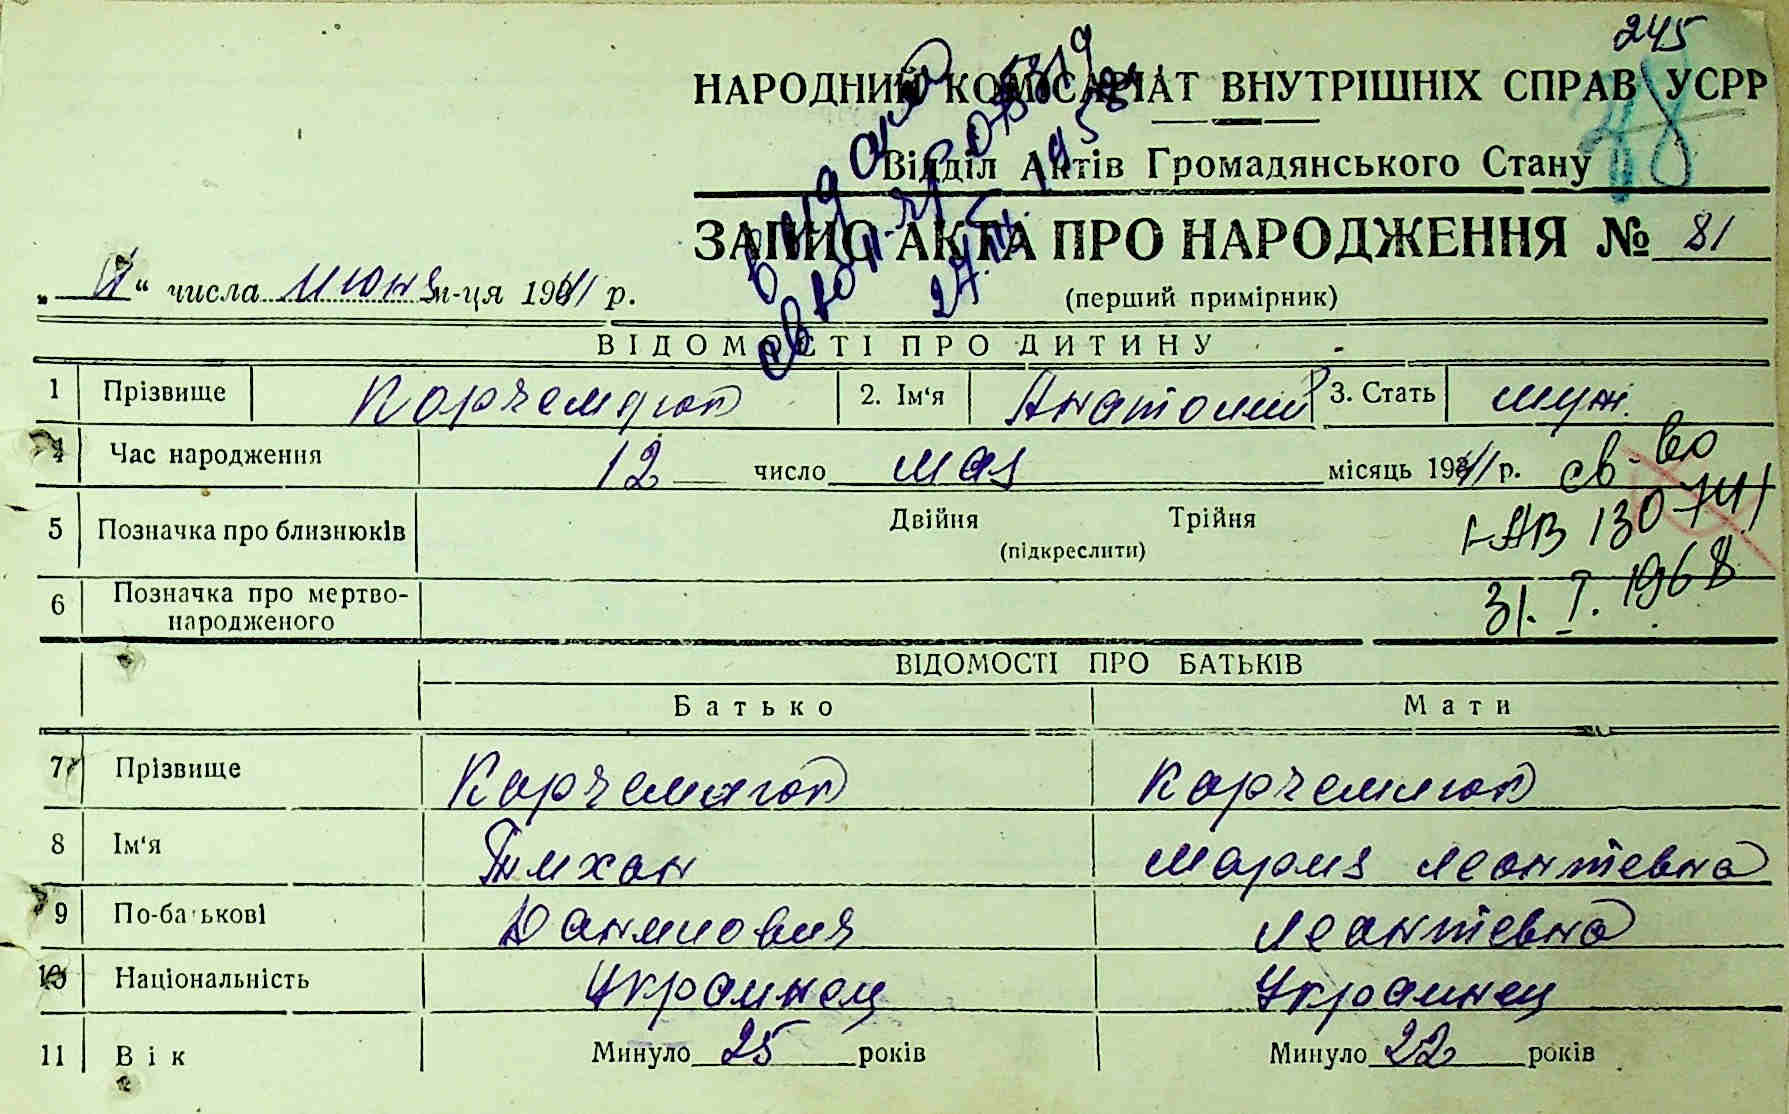 245
НАРОДНИЙ КОМІСАРІАТ ВНУТРІШНІХ СПРАВ УСРР
78
Відділ Актів Громадянського Стану
ЗАПИС АКТА ПРО НАРОДЖЕННЯ № 81
" " числа июня м-ця 1941 р.
(перший примірник)
ВІДОМОСТІ ПРО ДИТИНУ
1 Прізвище Карчемлюк 2. Ім'я Анатолий 3. Стать муж.
4 Час народження 12 число мая місяць 1941 р.
св-во
5 Позначка про близнюків Двійня Трійня
(підкреслити)
I-АВ 130741
6 Позначка про мертво-
народженого
31. I. 1968
ВІДОМОСТІ ПРО БАТЬКІВ
Батько Мати
7 Прізвище Карчемлюк Карчемлюк
8 Ім'я Тихан Мария Леантевна
9 По-батькові Данилович Леантевна
10 Національність Украинец Украинец
11 Вік Минуло 25 років Минуло 22 років